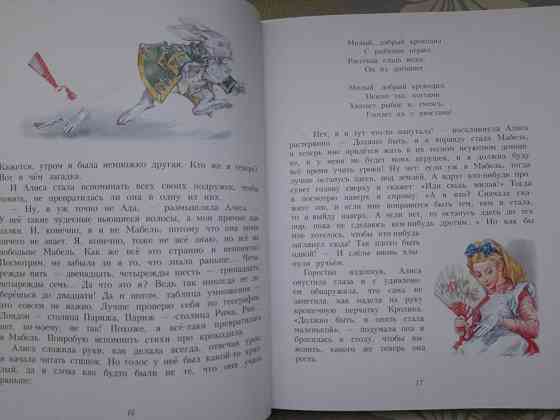 Кажется, утром я была немножко другая. Кто же я теперь?
Вот в чём загадка.
И Алиса стала вспоминать всех своих подружек, чтобы
понять, не превратилась ли она в одну из них.
— Ну, я уж точно не Ада, — размышляла Алиса. —
У неё такие чудесные вьющиеся волосы, а мои прямые как
палки. И, конечно, я и не Мабель, потому что она почти
ничего не знает. Я, конечно, тоже не всё знаю, но всё же
побольше Мабель. Как же всё это странно и непонятно!
Посмотрим, не забыла ли я то, что знала раньше...
Четырежды пять — двенадцать, четырежды шесть — тринадцать,
четырежды семь... Да что это я? Ведь так никогда не
доберёшься до двадцати! Да и потом, таблица умножения —
это совсем не важно. Лучше проверю себя по географии.
Лондон — столица Парижа, Париж — столица Рима, Рим...
нет, по-моему, не так! Похоже, я всё-таки превратилась
в Мабель. Попробую вспомнить стихи про крокодила.
Алиса сложила руки, как делала всегда, отвечая урок,
и начала читать стишок. Но голос у неё был какой-то хриплый,
да и слова как будто были не те, что она учила
раньше:
16
Милый, добрый крокодил
С рыбками играет.
Рассекая гладь воды,
Он их догоняет.
Милый, добрый крокодил,
Нежно так, когтями
Хватает рыбок и, смеясь,
Глотает их с хвостами!
Нет, я и тут что-то напутала! — воскликнула Алиса
растерянно. — Должно быть, я и вправду стала Мабель,
и теперь мне придётся жить в их тесном неуютном домике,
и у меня не будет моих игрушек, и я должна буду
всё время учить уроки! Ну нет: если уж я Мабель, тогда
лучше останусь здесь, под землёй. А вдруг кто-нибудь про-
сунет голову сверху и скажет: «Иди сюда, милая!» Тогда
я посмотрю наверх и спрошу: «А кто я? Сначала ска-
жите это, и если мне понравится быть тем, кем я стала,
то я выйду наверх. А если нет, то останусь здесь до тех
пор, пока не сделаюсь кем-нибудь другим...» Но как бы
мне хотелось, чтобы кто-нибудь
заглянул сюда! Так плохо быть
одной! — И слёзы вновь хлы-
нули ручьём.
Горестно вздохнув, Алиса
опустила глаза и с удивлени-
ем обнаружила, что сама не
заметила, как надела на руку
крошечную перчатку Кролика.
«Должно быть, я опять стала
маленькой», — подумала она и
бросилась к столу, чтобы вы-
яснить, какого же теперь она
роста.
17